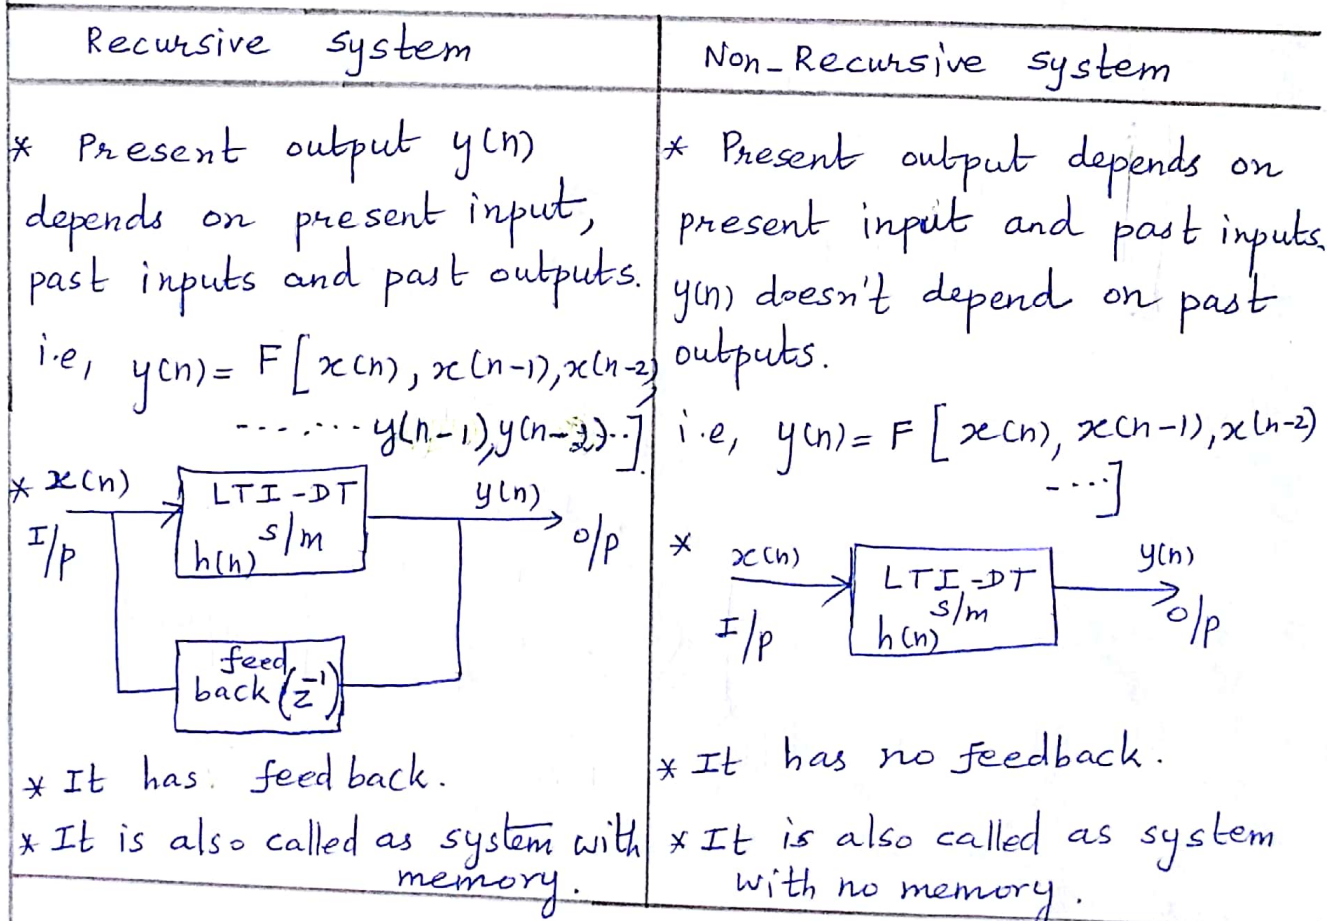 Recursive system
* Present output y(n)
depends on present input,
past inputs and past outputs.
i.e, y(n)= F[x(n), x(n-1),x(n-2)
....... y(n-1),y(n-2)..]
* x(n)
I/p
LTI-DT
s/m
h(n)
y(n)
o/p
feed
back (z⁻¹)
* It has feed back.
* It is also called as system with
memory.
Non-Recursive system
* Present output depends on
present input and past inputs.
y(n) doesn't depend on past
outputs.
i.e, y(n)= F [x(n), x(n-1),x(n-2)
....]
*
x(n)
I/p
LTI-DT
s/m
h(n)
y(n)
o/p
* It has no feedback.
* It is also called as system
with no memory.